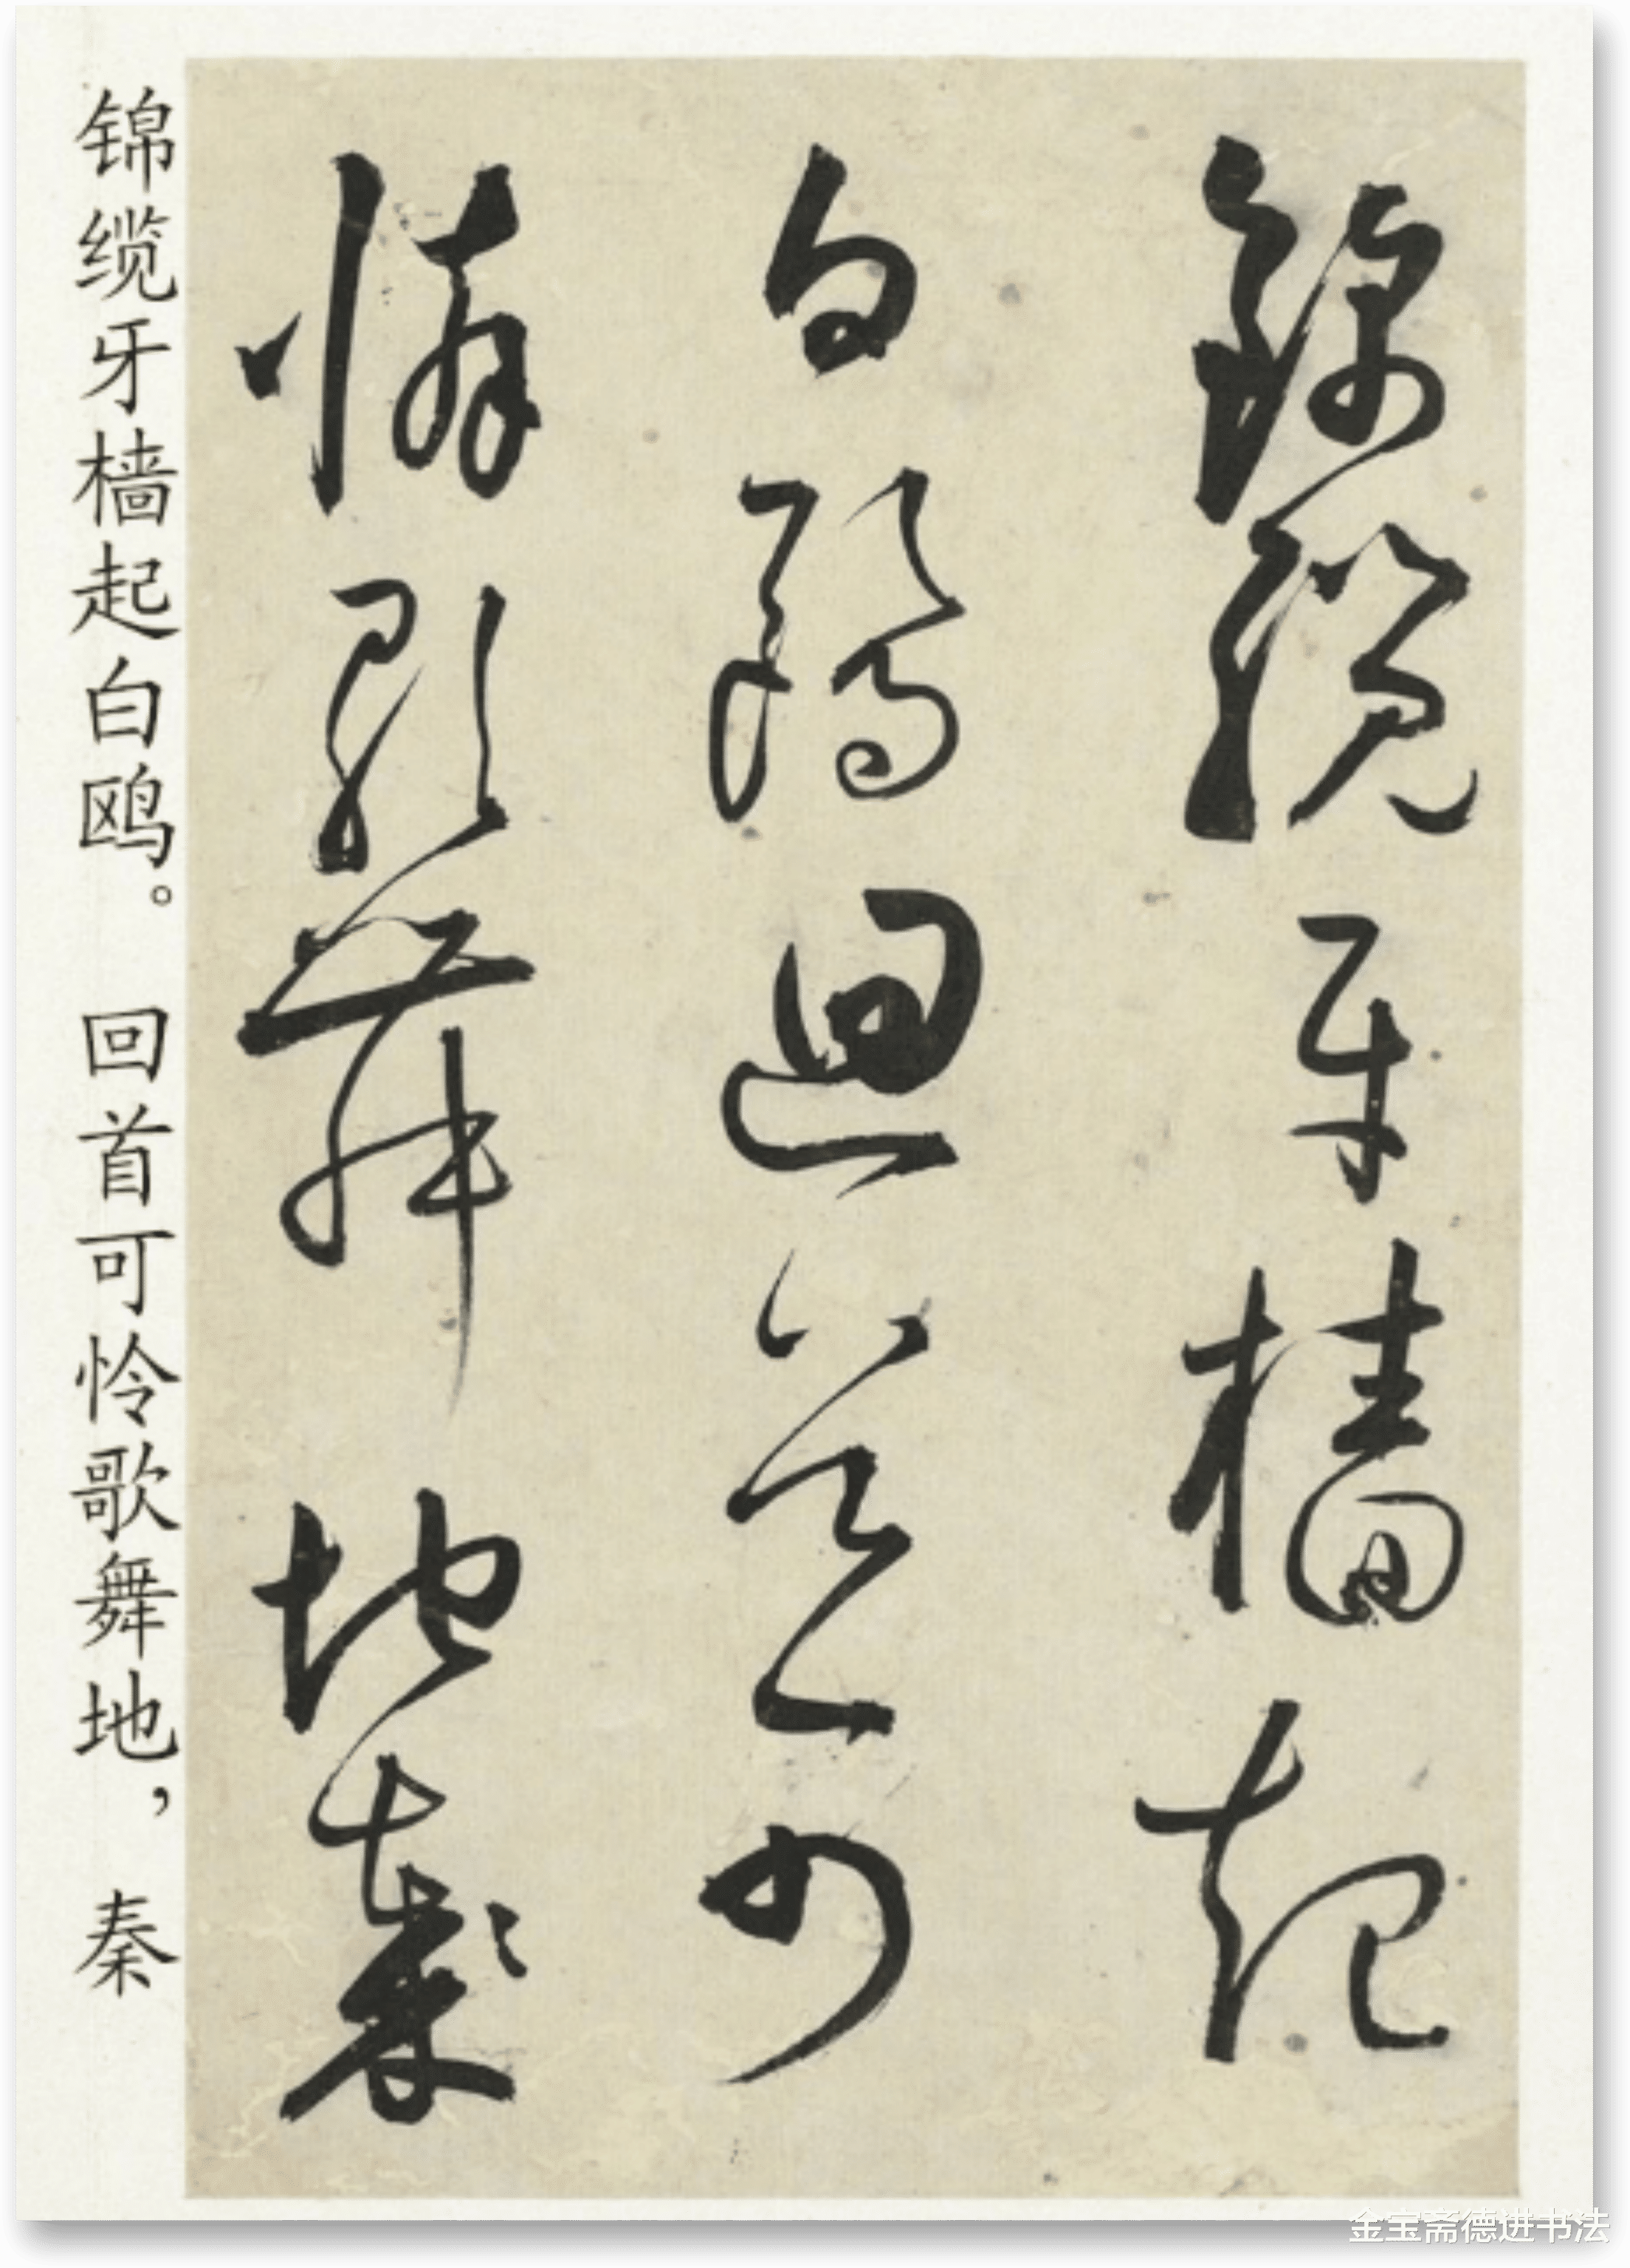 錦纜牙檣起
白鷗迴首可
憐歌舞地秦
锦缆牙樯起白鸥。回首可怜歌舞地，秦
金宝斋德进书法